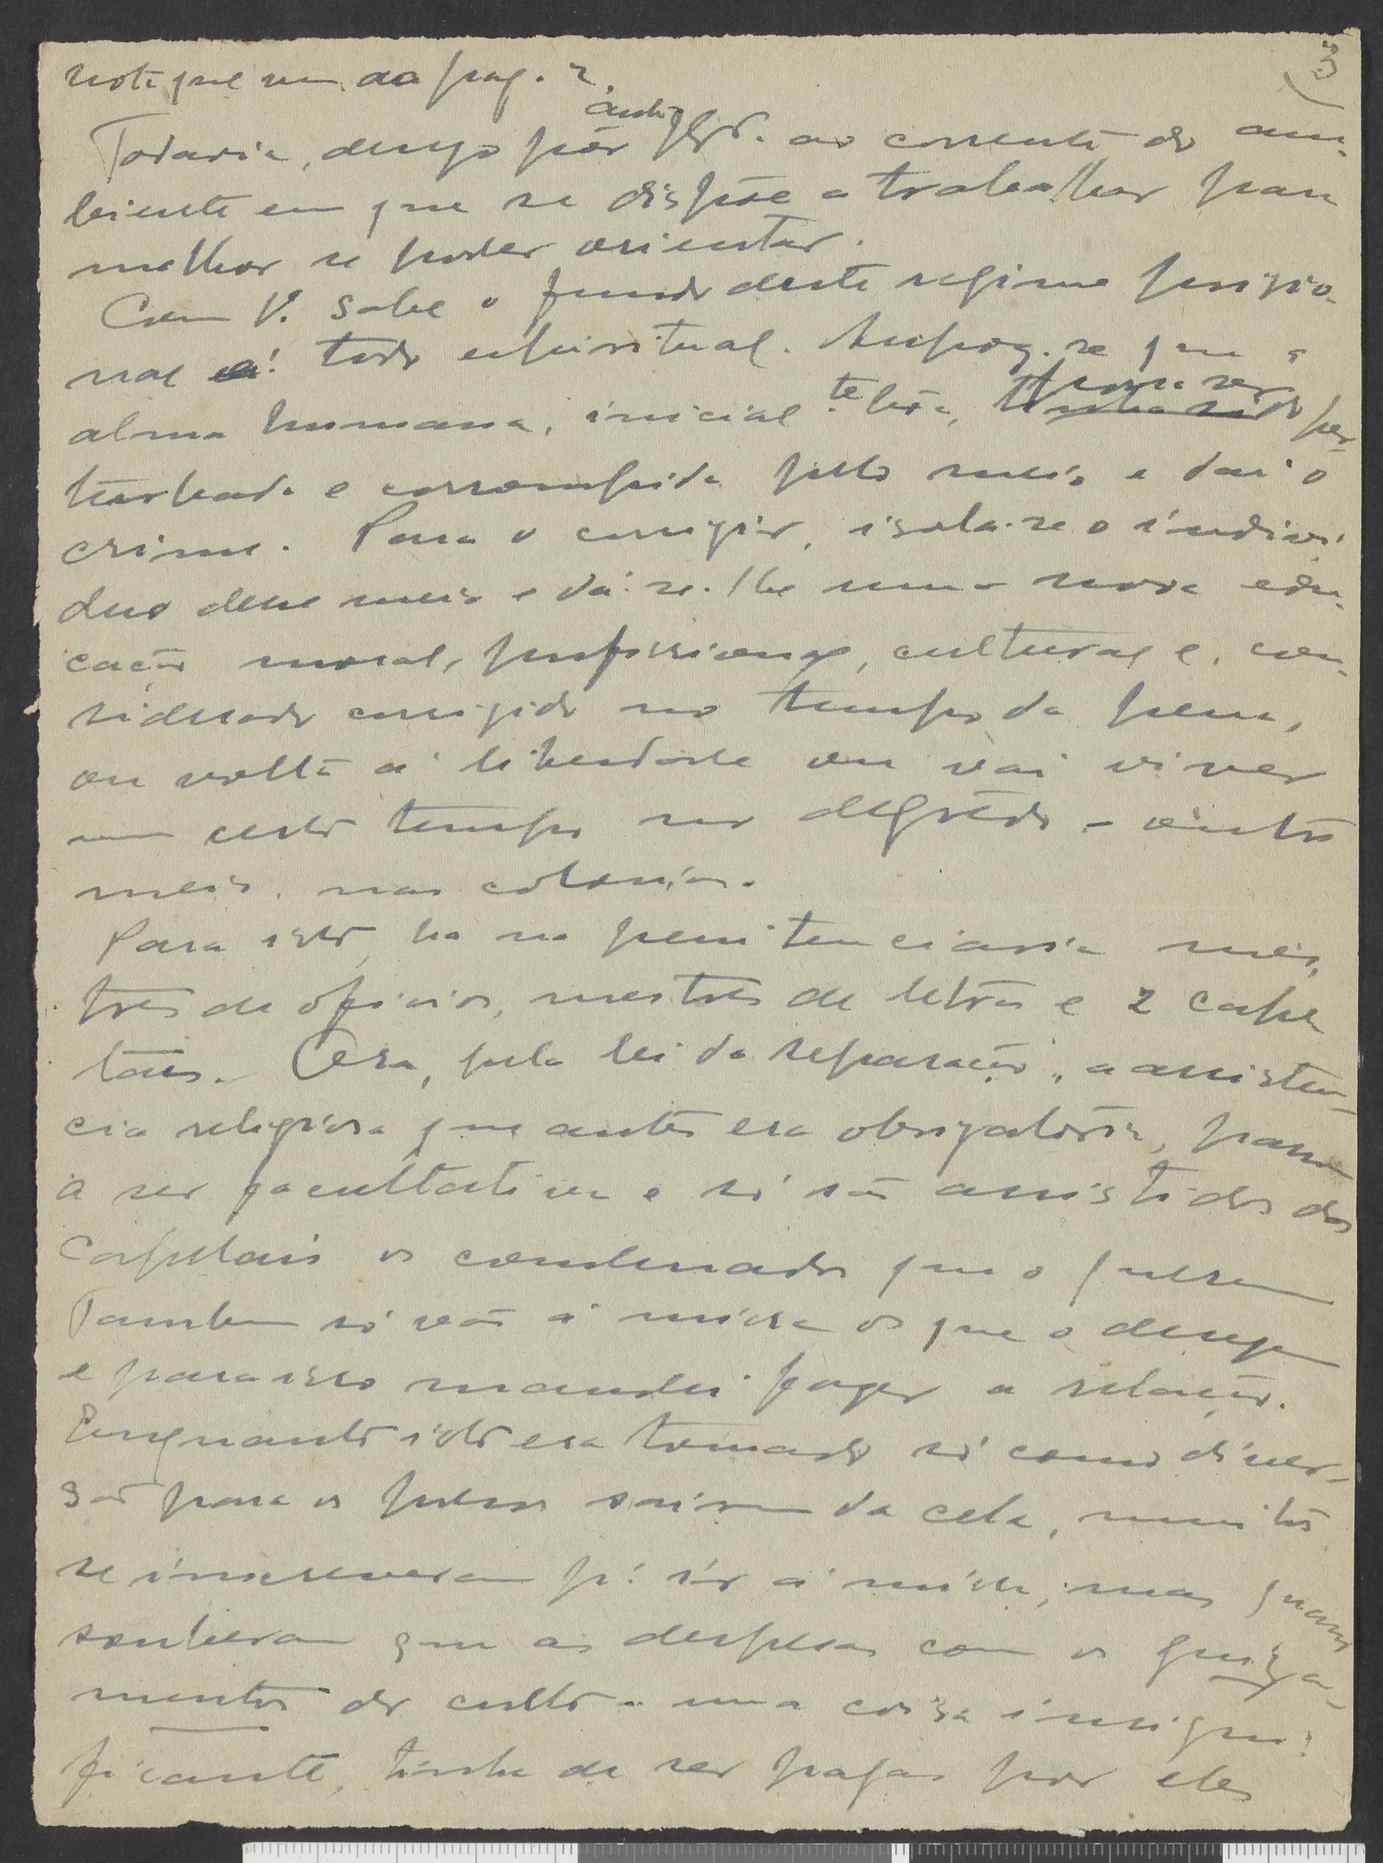 3
note que vem da pag. 2.
Todavia, desejo pôr ao corrente do am-
biente em que se dispõe a trabalhar para
melhor se poder orientar.
Como V. sabe o fundo deste regime prisio-
nal é todo espiritual. Supõe-se que a
alma humana, inicial.te bôa, possa ser per-
turbada e corrompida pelo meio e daí o
crime. Para o corrigir, isola-se o indivi-
duo desse meio e dá-se-lhe uma nova edu-
cação moral, profissional, cultural e, con-
siderado corrigido no tempo da pena,
ou volta á liberdade ou vai viver
um certo tempo no degrêdo - outro
meio, nas colonias.
Para isto, ha na penitenciaria mes-
tres de oficios, mestres de letras e 2 cape-
lães. Ora, pela lei da separação, a assisten-
cia religiosa que antes era obrigatória, passa
a ser facultativa e só são assistidos dos
capelães os condenados que o queiram
Tambem só vão á missa os que o desejem
e para isso mandei fazer a relação.
Enquanto isto era tomado só como diver-
são para os presos sairem da cela, muitos
se inscreveram p.ª ir á missa, mas quando
souberam que as despesas com os guiza-
mentos do culto - uma coisa insigni-
ficante, tinha de ser pagas por eles